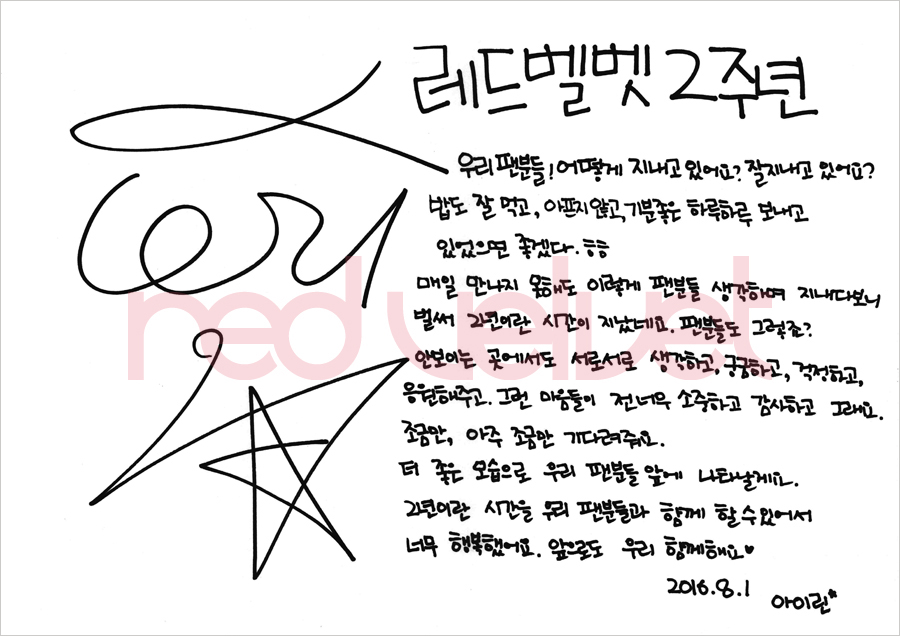 레드벨벳 2주년
우리 팬분들! 어떻게 지내고 있어요? 잘지내고 있어요?
밥도 잘 먹고, 아프지않고, 기분좋은 하루하루 보내고
있었으면 좋겠다. ㅎㅎ
매일 만나지 못해도 이렇게 팬분들 생각하며 지내다보니
벌써 2년이란 시간이 지났네요. 팬분들도 그렇죠?
안보이는 곳에서도 서로서로 생각하고, 궁금하고, 걱정하고,
응원해주고. 그런 마음들이 전 너무 소중하고 감사하고 그래요.
조금만, 아주 조금만 기다려줘요.
더 좋은 모습으로 우리 팬분들 앞에 나타날게요.
2년이란 시간을 우리 팬분들과 함께 할 수 있어서
너무 행복했어요. 앞으로도 우리 함께해요♥
2016.8.1 아이린*
red velvet